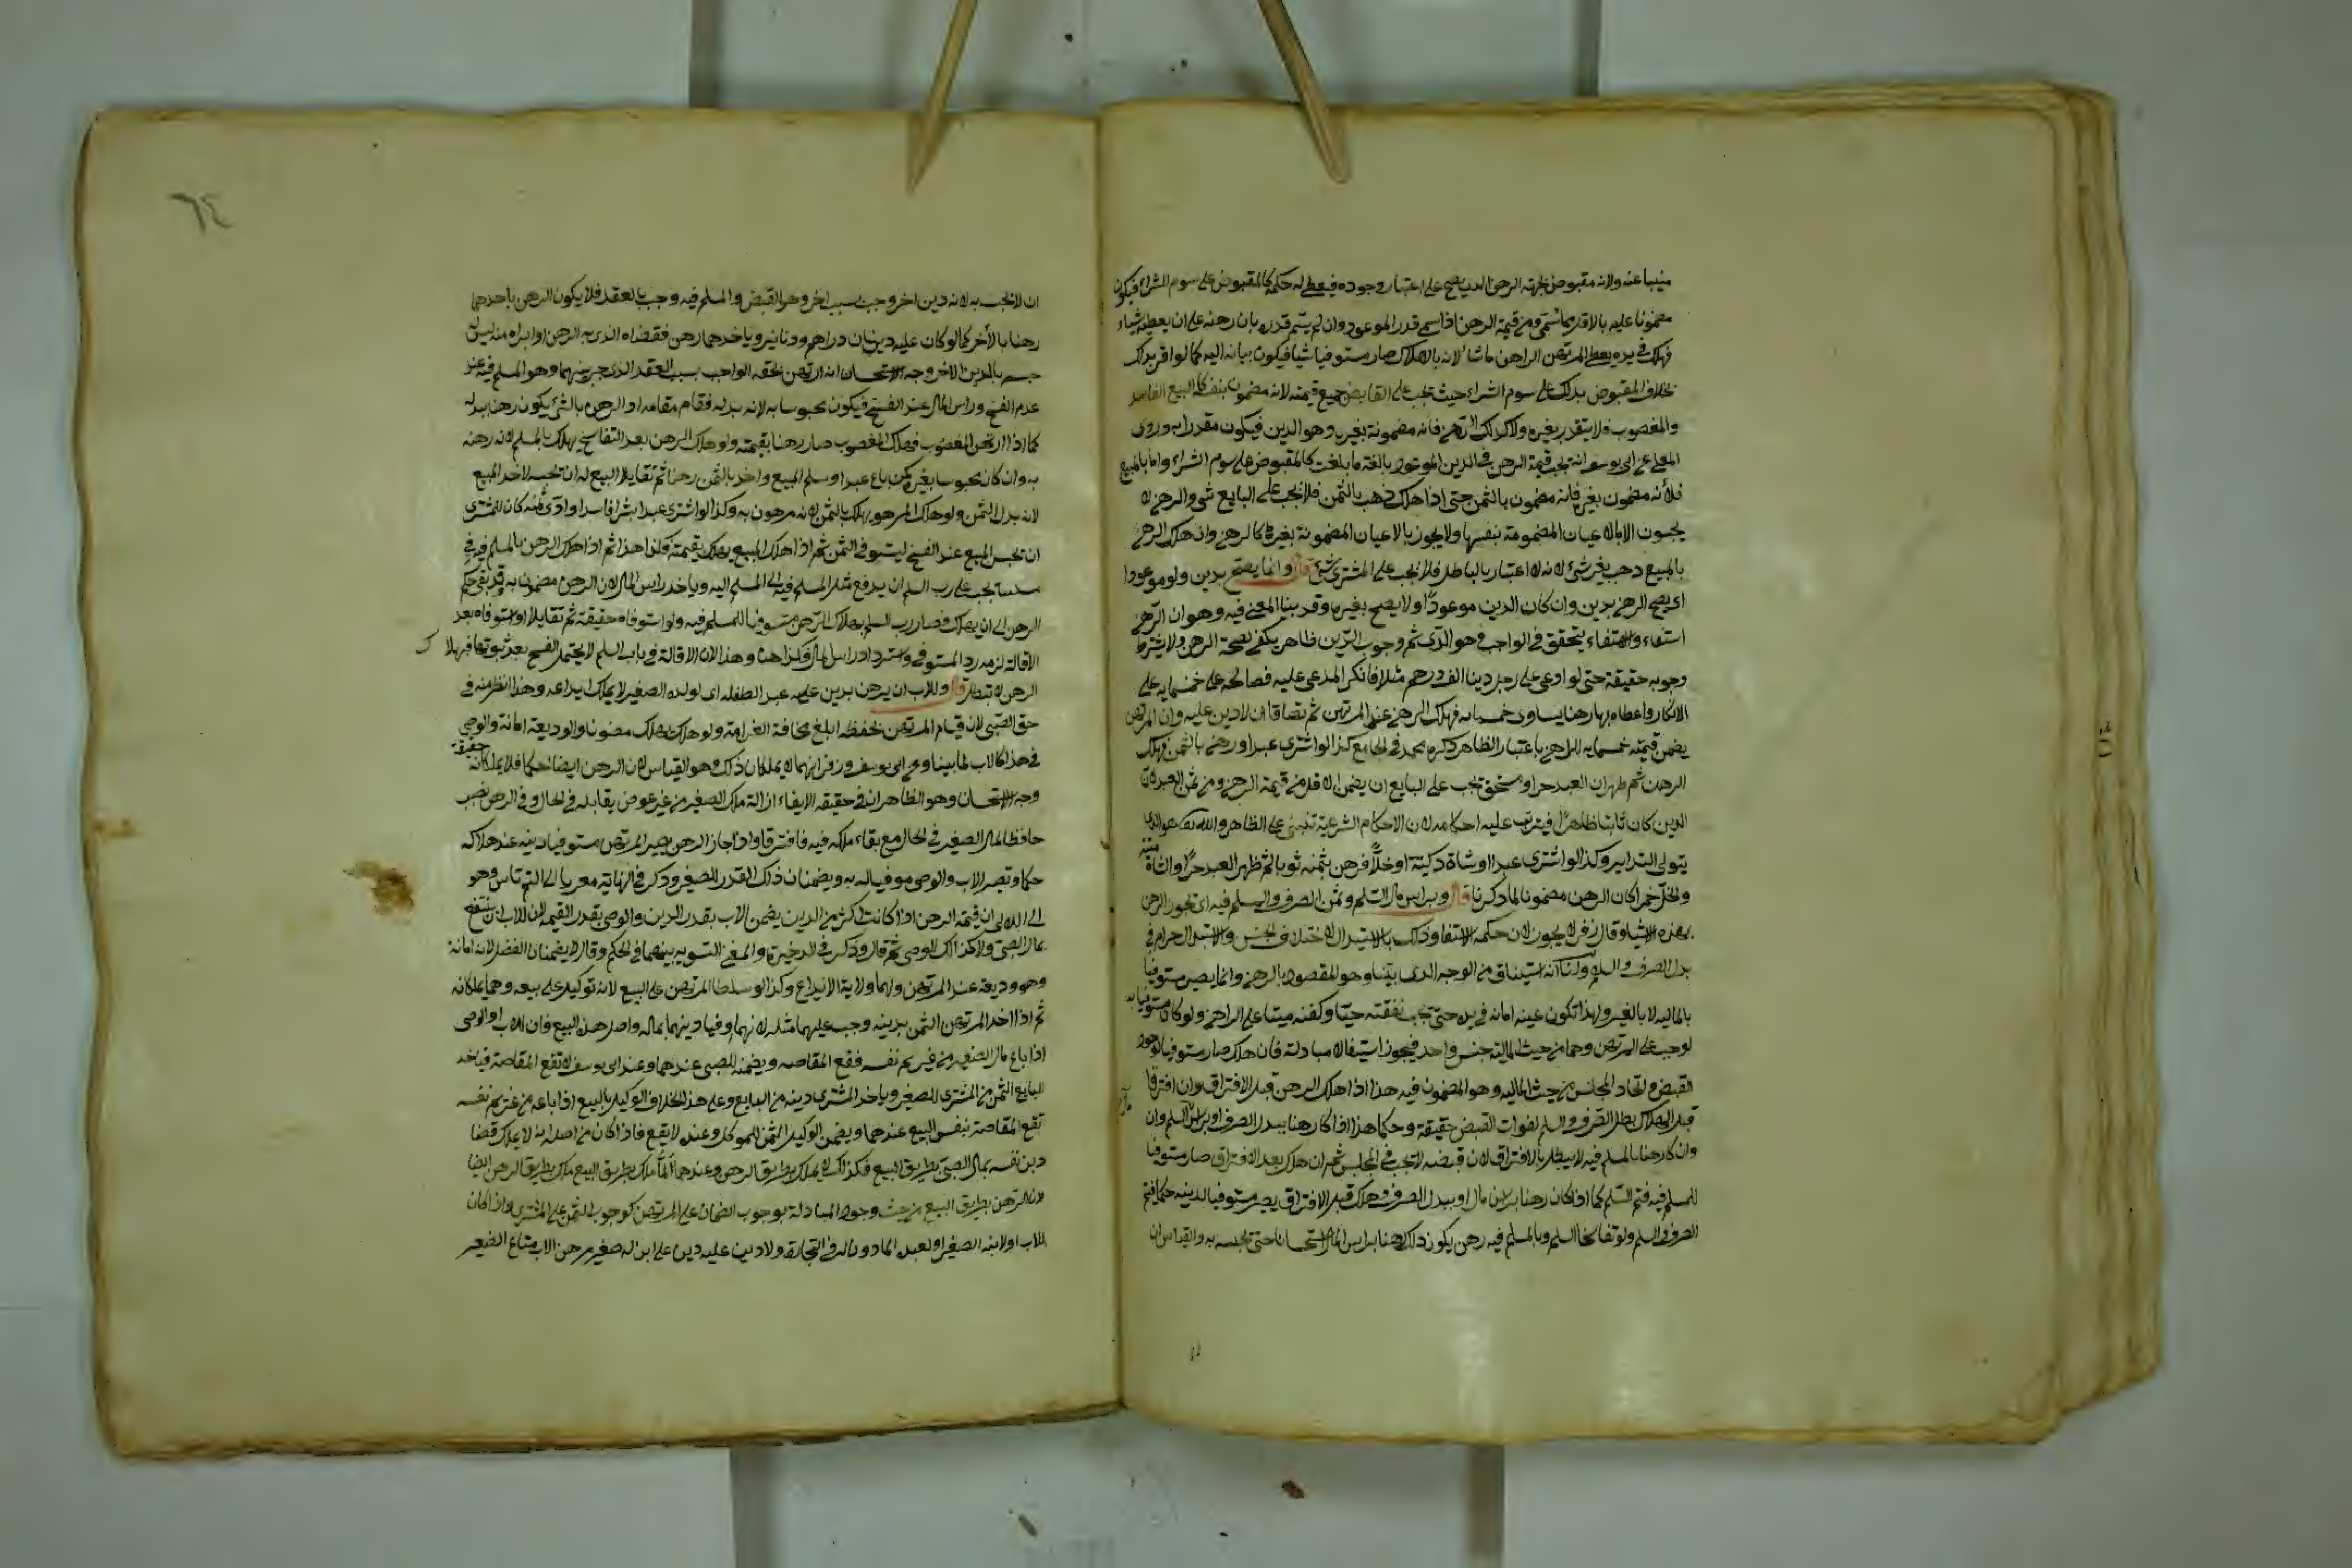 منيبا عنه ولانه مقبوض بجهة الرهن الذي يصح على اعتبار وجوده فيعطى له حكمه كالمقبوض على سوم الشراء فيكون
مضمونا عليه بالاقل مما سمى ومن قيمة الرهن اذا سمى قدر الموعود وان لم يسم قدره بان رهنه على ان يعطيه شياء
فهلك في يده يعطى المرتهن الراهن ما شاء لانه بالاهلاك صار مستوفيا شيا فيكون بيانه اليه كما لو اقر بذلك
بخلاف المقبوض بذلك على سوم الشراء حيث تجب على القابض جميع قيمته لانه مضمون بنفسه كالبيع الفاسد
والمغصوب فلا يتقدر بغيره ولا كذلك الرهن فانه مضمونة بغيره وهو الدين فيكون مقدرا به وروى
المعلى عن ابى يوسف انه تجب قيمة الرهن في الدين الموعود بالغة ما بلغت كالمقبوض على سوم الشراء واما بالمبيع
فلأنه مضمون بغيره فانه مضمون بالثمن حتى اذا هلك ذهب بالثمن فلا تجب على البايع شي والرهن لا
يجوز الا بالاعيان المضمومة بنفسها ولا يجوز بالاعيان المضمونة بغيرها كالرهن وان هلك الرهن
بالمبيع ذهب بغير شئ لانه لا اعتبار بالباطل فلا تجب على المشترى شئ قال وانما يصح بدين ولو موعودا
اى يصح الرهن بدين وان كان الدين موعودًا ولا يصح بغيره وقد بينا المعنى فيه وهو ان الرهن
استيفاء والاستيفاء يتحقق في الواجب وهو الدين ثم وجوب الدين ظاهر يكفي لصحة الرهن ولا يشترط
وجوبه حقيقة حتى لو ادعى على رجل دينا الف درهم مثلا فانكر المدعى عليه فصالحه على خمسمايه على
الانكار واعطاه بها رهنا يساوى خمسمايه فهلك الرهن عند المرتهن ثم تصادقا ان لا دين عليه وان المرتهن
يضمن قيمته خمسمايه للراهن باعتبار الظاهر ذكره محمد في الجامع كذا لو اشترى عبدا ورهن بالثمن فهلك
الرهن ثم ظهر ان العبد حرا او مستحق تجب على البايع ان يضمن الاقل من قيمة الرهن ومن ثمن العبد لان
الدين كان ثابتا ظاهرًا فيترتب عليه احكامه لان الاحكام الشرعية تبتنى على الظاهر والله تعالى هو الذى
يتولى السراير وكذا لو اشترى عبدا او شاة ذكية او خلًا فرهن بثمنه ثوبا ثم ظهر العبد حرًا والشاة ميتة
والخل خمرا كان الرهن مضمونا لما ذكرنا قال وبراس مال السلم وثمن الصرف والمسلم فيه اى تجوز الرهن
بهذه الاشيا وقال زفر لا يجوز لان حكمه الاستيفا وذلك بالاستبدال لاختلاف الجنس والاستبدال حرام في
بدل الصرف والسلم ولنا انه استيفاء من الوجه الذى بينا وهو المقصود بالرهن وانما يصير مستوفيا
بالماليه لا بالغير ولهذا تكون عينه امانه في يده حتى تجب نفقته حيًا وكفنه ميتا على الراهن ولو كان مستوفيا به
لوجب على المرتهن وهما من حيث المالية جنس واحد فيجوز استيفا لا مبادلة فان هلك صار مستوفيا لوجود
القبض واتحاد المجلس من حيث الماليه وهو المضمون فيه هذا اذا هلك الرهن قبل الافتراق وان افترقا
قبل الهلاك بطل الصرف والسلم لفوات القبض حقيقة وحكما هذا اذا كان رهنا ببدل الصرف او براس السلم وان
وان كان رهنا بالمسلم فيه لا يبطل بالافتراق لان قبضه لا تجب في المجلس ثم ان هلك بعد الافتراق صار مستوفيا
للمسلم فيه فتم السلم كما اذا كان رهنا براس مال او ببدل الصرف وهلك قبل الافتراق يصير مستوفيا لدينه حكما فتم
الصرف والسلم ولو تفاسخا السلم وبالمسلم فيه رهن يكون ذلك رهنا براس المال استحسانا حتى يحبسه به والقياس ان
٦٤
ان لا تحبسه به لانه دين اخر وجب بسبب اخر وهو القبض والمسلم فيه وجب بالعقد فلا يكون الرهن باحدهما
رهنا بالآخر كما لو كان عليه دينان دراهم ودنانير وباحدهما رهن فقضاه الذى به الرهن او ابراه منه ليس له
حبسه بالدين الاخر وجه الاستحسان انه ارتهن بحقه الواجب بسبب العقد الذى جرى بينهما وهو المسلم فيه عند
عدم الفسخ وراس المال عند الفسخ فيكون محبوسا به لانه بدله فقام مقامه اذ الرهن بالشئ يكون رهنا ببدله
كما اذا ارتهن المغصوب فهلك المغصوب صار رهنا بقيمته ولو هلك الرهن بعد التفاسخ يهلك بالمسلم لانه رهنه
به وان كان محبوسا بغيره كمن باع عبدا وسلم المبيع واخذ بالثمن رهنا ثم تقايلا البيع له ان تحبسه لاخذ المبيع
لانه بدل الثمن ولو هلك المرهون يهلك بالثمن لانه مرهون به وكذا لو اشترى عبدا شرا فاسدا وادى ثمنه كان للمشترى
ان تحبس المبيع عند الفسخ ليستوفى الثمن ثم اذا هلك المبيع يهلك بقيمته فكذا هذا ثم اذا هلك الرهن بالمسلم فيه في
مسئلتنا تجب على رب السلم ان يدفع مثل المسلم فيه الى المسلم اليه وياخذ راس المال لان الرهن مضمون به وقد بقى حكم
الرهن الى ان يهلك فصار رب السلم بهلاك الرهن مستوفيا للمسلم فيه ولو استوفاه حقيقة ثم تقايلا او استوفاه بعد
الاقالة لزمه رد المستوفى واسترداد راس المال فكذا هنا وهذا لان الاقالة في باب السلم لا يحتمل الفسخ بعد ثبوتها فهلاك
الرهن لا تبطل قال وللاب ان يرهن بدين عليه عبد الطفله اى لولده الصغير لا يملك ايداعه وهذا انظر منه في
حق الصبى لان قيام المرتهن بحفظه ابلغ مخافة الغرامة ولو هلك يهلك مضمونا والوديعة امانة والوصى
في هذا كالاب لما بينا وعن ابى يوسف وزفر انهما لا يملكان ذلك وهو القياس لان الرهن ايفا حكما فلا يملكانه حقيقة
وجه الاستحسان وهو الظاهر ان في حقيقة الايفاء ازالة ملك الصغير من غير عوض يقابله في الحال وفي الرهن نصب
حافظا لمال الصغير في الحال مع بقاء ملكه فيه فافترقا واذا جاز الرهن يصير المرتهن مستوفيا دينه عند هلاكه
حكما وتصير الاب والوصى موفيا له به ويضمنان ذلك القدر للصغير وذكر في النهاية معزيا الى التمرتاشى وهو
الى ان قيمة الرهن اذا كانت اكثر من الدين يضمن الاب بقدر الدين والوصى بقدر القيمة لان للاب ان ينتفع
بمال الصبى ولا كذلك الوصى ثم قال وذكر في الذخيرة والمغنى التسويه بينهما في الحكم وقالا لا يضمنان الفضل لانه امانة
وهو وديعة عند المرتهن ولهما ولاية الايداع وكذا لو سلطا المرتهن على البيع لانه توكيل على بيعه وهما يملكانه
ثم اذا اخذ المرتهن الثمن بدينه وجب عليهما مثله لانهما اوفيا دينهما بماله واصل هذا البيع فان الاب او الوصى
اذا باع مال الصغير من غريم نفسه فتقع المقاصه ويضمنه للصبى عندهما وعند ابى يوسف لا تقع المقاصة فياخذ
البايع الثمن من المشترى للصغير وياخذ المشترى دينه من البايع وعلى هذا الخلاف الوكيل بالبيع اذا باعه من غريم نفسه
تقع المقاصة بنفس البيع عندهما ويضمن الوكيل الثمن للموكل وعنده لا يقع فاذا كان من اصله انه لا يملك قضا
دين نفسه بمال الصبى بطريق البيع فكذلك لا يملك بطريق الرهن وعندهما لما ملك بطريق البيع ملك بطريق الرهن ايضا
لان الرهن بطريق البيع من حيث وجود المبادلة بوجوب الضمان على المرتهن كوجوب الثمن على المشترى واذا كان
للاب او لابنه الصغير او لعبده الماذون له في التجارة ولا دين عليه دين على ابن له صغير رهن الاب متاع الصغير